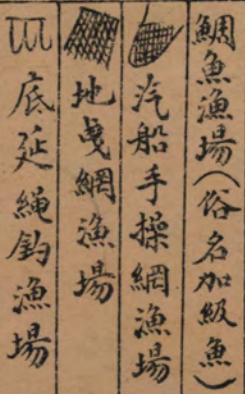 鯛魚漁場(俗名加級魚)
汽船手操網漁場
地曳網漁場
底延縄釣漁場